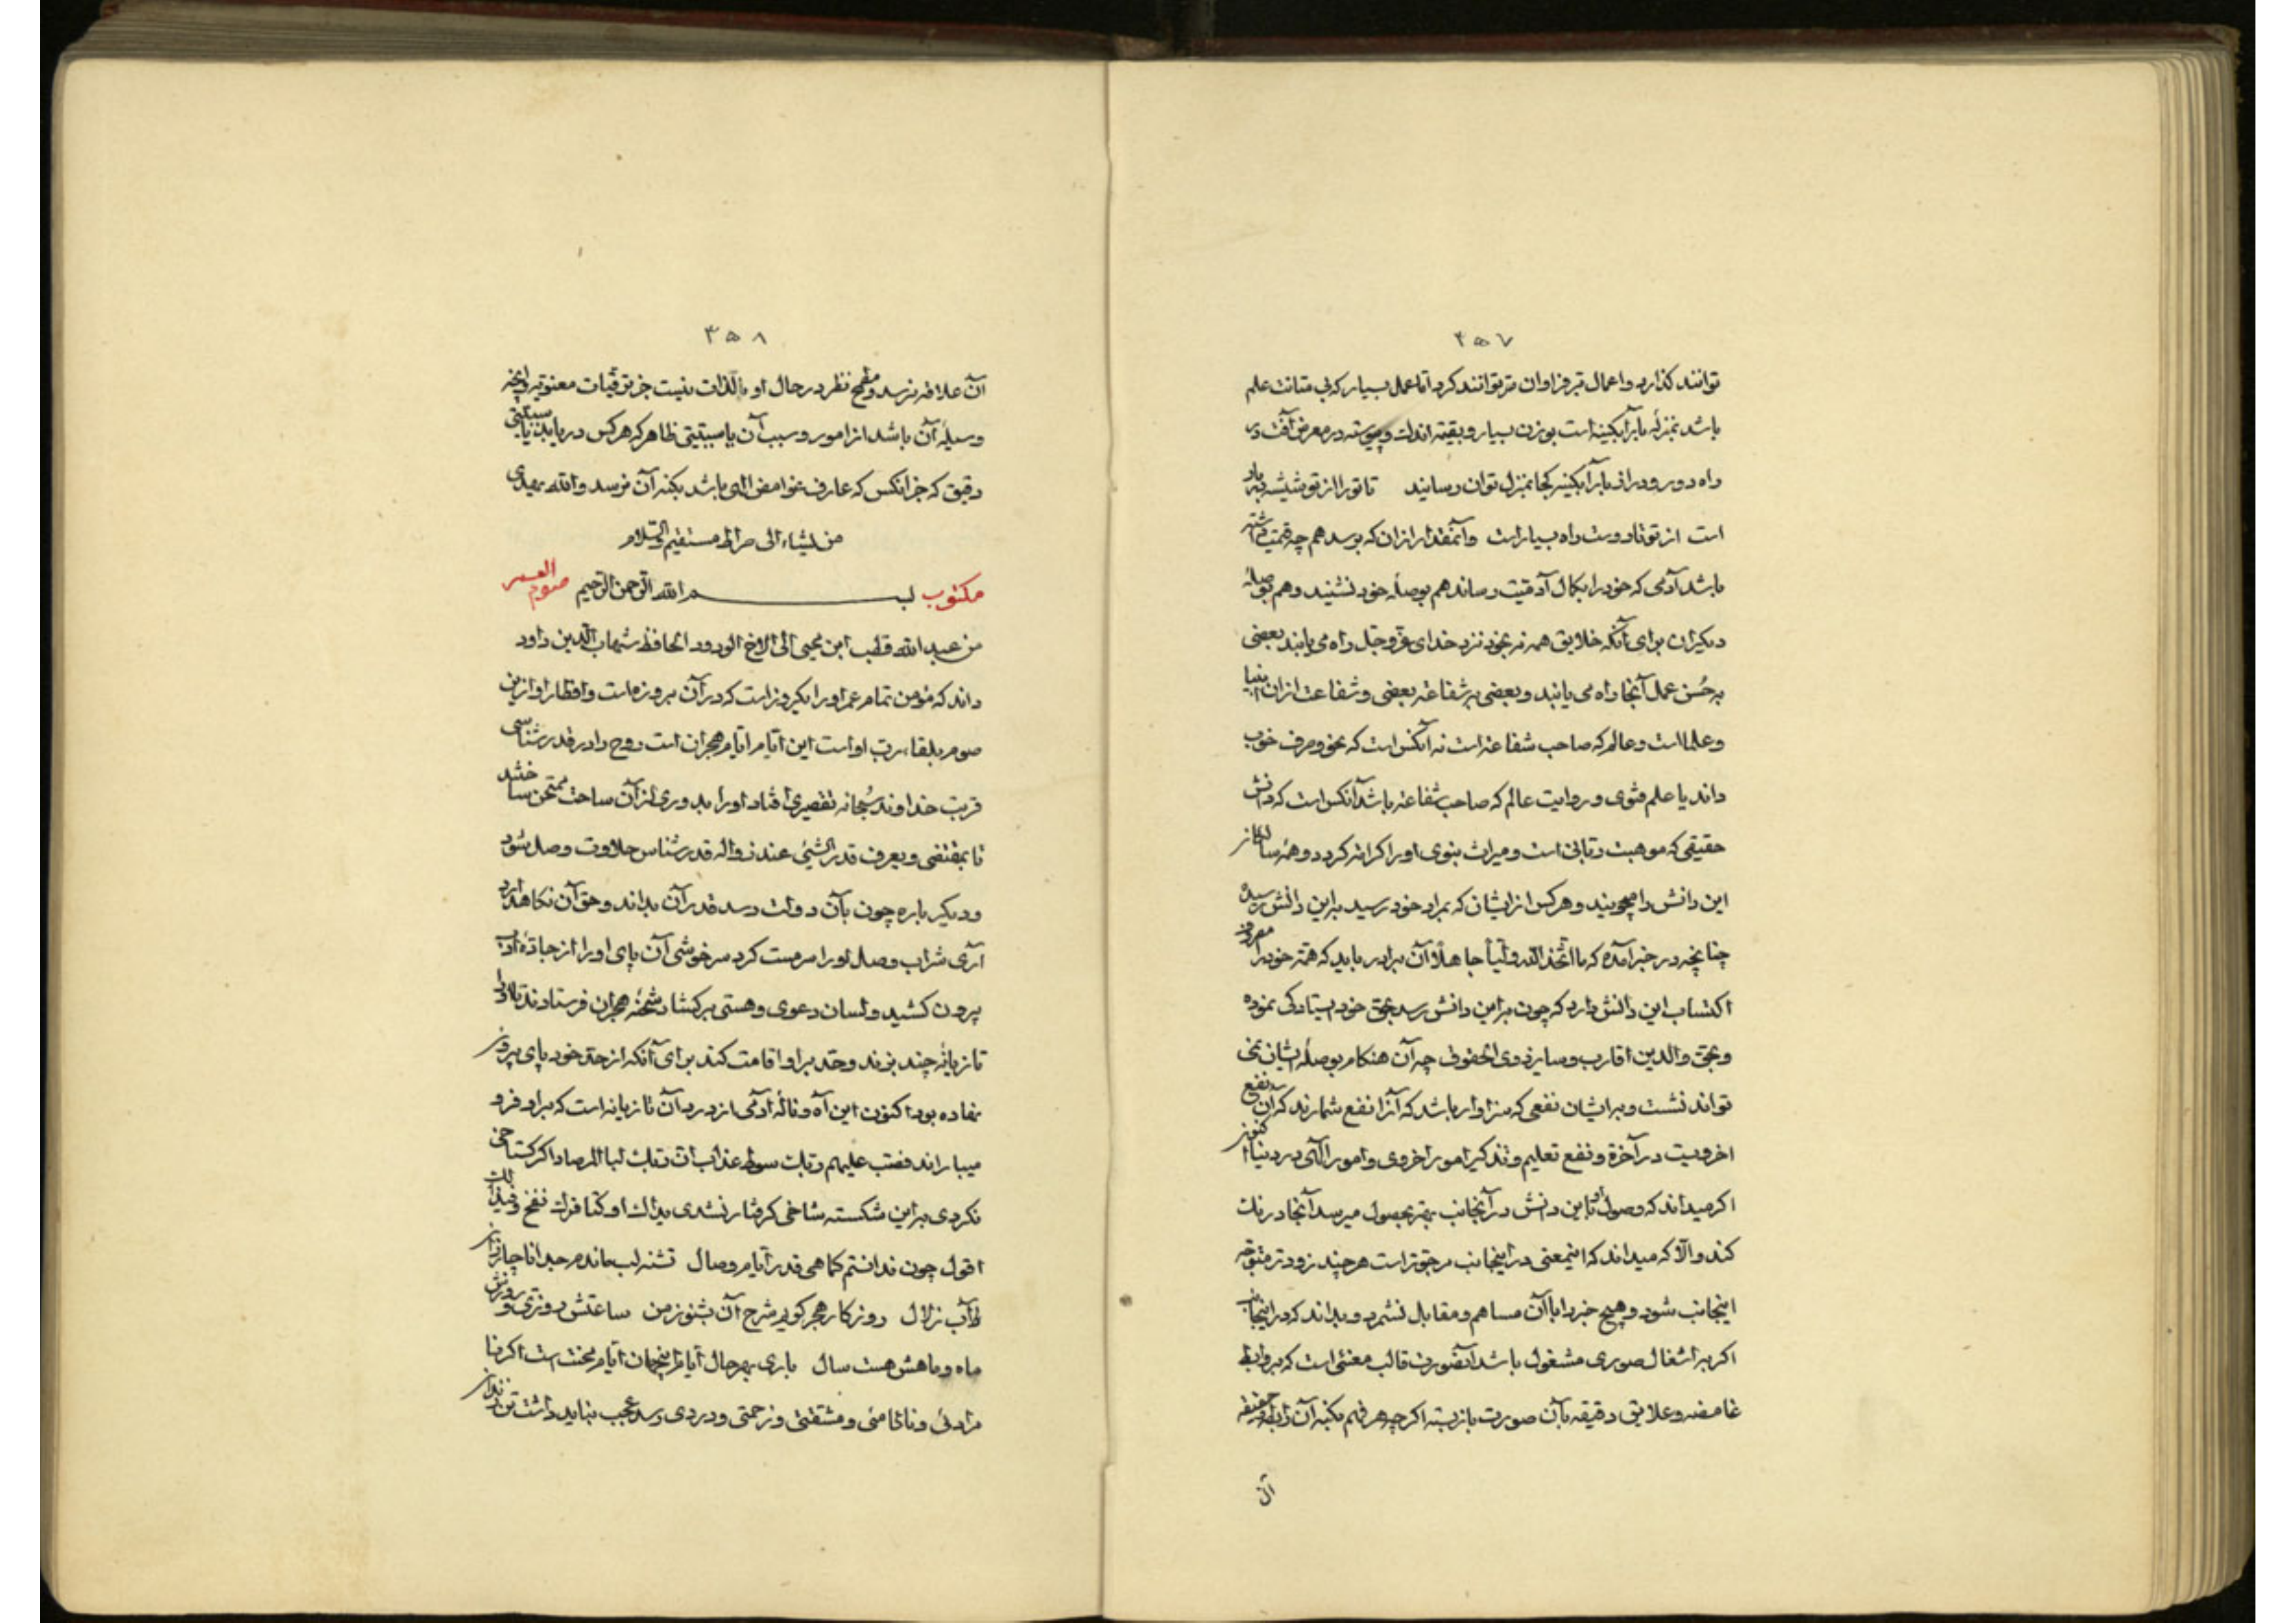 ۴۵۷
توانند کذارد و اعمال تبرفراوان تر توانند کرد اما عمل بسیار که بی متانت علم
باشد بمنزلهٔ بار آبکینه است بوزن بسیار و بقیمة اندک و پیوسته در معرض آفت و
راه دور و دراز بار آبکینه کجا بمنزل توان رسانید تا تو را از تو شیشه در بار
است از تو تا دوست راه بسیار است و آنمقدار از ان که برسد هم چه قیمت داشته
باشد آدمی که خود را بکمال آدمیت رساند هم بوصلهٔ خود نشیند و هم بوصلهٔ
دیکران برای آنکه خلایق همه نه بخود نزد خدای عزوجل راه می یابند بعضی
به حُسن عمل آنجا راه می یابند و بعضی به شفاعة بعضی و شفاعت ازان انبیا
و علما است و عالم که صاحب شفاعة است نه آنکس است که نحو و صرف خوب
داند یا علم فتوی و روایت عالم که صاحب شفاعة باشد آنکس است که دانش
حقیقی که موهبت ربانی است و میراث نبوی او را کرامة کردد و همهٔ سالکان
این دانش را میجویند و هرکس از ایشان که بمراد خود رسید براین دانش رسیده
چنانچه در خبر آمده که ما اتّخذ الله ولیّاً جاهلاً آن برادر باید که همّة خود را مصروف
اکتساب این دانش دارد که چون براین دانش رسد بحق خود ایستادکی نموده
و بحق والدین اقارب و سایر ذوی الحقوق چه آن هنکام بوصلهٔ ایشان می
تواند نشست و برایشان نفعی که سزاوار باشد که آنرا نفع شمارند که آن نفع
اخرویست در آخرة و نفع تعلیم و تذکیر امور اخروی و امور الٓهی در دنیا اکنون
اکر میداند که وصول او باین دانش در آنجانب بهتر بحصول میرسد آنجا درنک
کند و الّا که میداند که اینمعنی در اینجانب مرجوتر است هر چند زودتر متوجّه
اینجانب شود و هیچ خبر را با آن مساهم و مقابل نشمرد و بداند که در اینجانب
اکر به اشغال صوری مشغول باشد آنصورت قالب معنئی است که بروابط
غامضه و علایق دقیقه بآن صورت بازبسته اکرچه هر فهم بکنه آن رابطه و حقیقة
آن
۴۵۸
آن علاقه نرسد و مطمح نظر در حال او بالذات نیست جز ترقیات معنویه و آنچه
وسیلهٔ آن باشد از امور و سبب آن یا سببیّتی ظاهر که هرکس دریابد یا سببیّتی
دقیق که جز آنکس که عارف غوامض الٓهی باشد بکنه آن نرسد و الله یهدی
من یشاء الی صراط مستقیم والسلام
مکتوب بسم الله الرّحمن الرّحیم صوم العمر
من عبد الله قطب ابن محیی الی الاخ الودود الحافظ شهاب الدین داود
داند که مؤمن تمام عمر او را یکروز است که در آن بروزه است و افطار او از این
صوم بلقاء رب او است این ایّام ایّام هجران است روح را در قدرشناسی
قربت خداوند سُبحانه تقصیری افتاد او را بدوری از آن ساحت ممتحن ساختند
تا بمقتضی و یعرف قدر الشئ عند زواله قدرشناس حلاوت وصل شود
و دیکر باره چون بآن دولت رسد قدر آن بداند و حق آن نکاهدارد
آری شراب وصال او را سرمست کرد سرخوشی آن پای او را از جادهٔ ادب
بیرون کشید و لسان دعوی و هستی برکشاد شحنهٔ هجران فرستادند تا او را
تازیانهٔ چند بزند و حدّ بر او اقامت کند برای آنکه از حد خود پای بیرون
نهاده بود اکنون این آه و نالهٔ آدمی از درد آن تازیانه است که بر او فرو
میباراند فصّب علیهم ربک سوط عذاب انّ ربک لبالمرصاد اکر کستاخی
نکردی براین شکسته شاخی کرفتار نشدی یداک اوکتا و فوک نفخ
اقول چون ندانستم کماهی قدر ایّام وصال تشنه لب ماندم جدا ناچار از
آب زلال روزکار هجر کویم شرح آن بشنو ز من ساعتش روزی و روزش
ماه و ماهش هست سال باری بهرحال ایّام اینجهان ایّام محنت است اکر نا
مرادئی و ناکامئی و مشقتئی و زحمتی و دردی رسد عجب نباید داشت